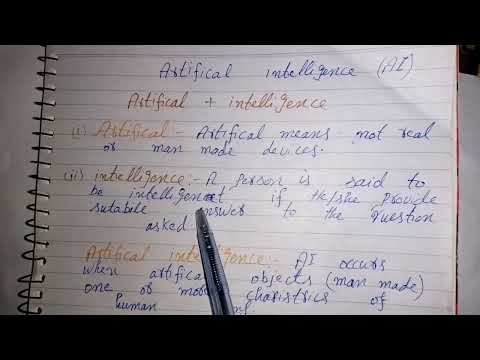 Artifical intelligence (AI)
Artifical + intelligence
(i) Artifical :- Artifical means not real
or man made devices.
(ii) intelligence :- A person is said to
be intelligenct if He/she provide
sutabile answer to the question
asked
Artifical intelligence :- AI occurs
when artifical objects (man made)
one or more charistrics of
human